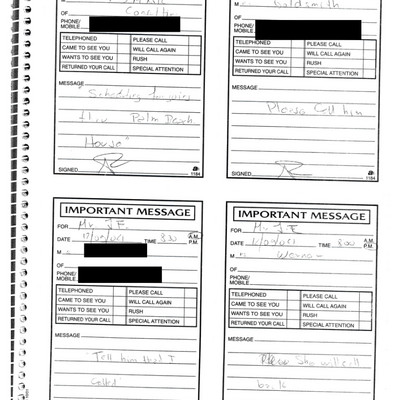 OF
PHONE/
MOBILE
TELEPHONED PLEASE CALL
CAME TO SEE YOU WILL CALL AGAIN
WANTS TO SEE YOU RUSH
RETURNED YOUR CALL SPECIAL ATTENTION
MESSAGE
Palm Beach
House"
SIGNED 1184
Goldsmith
OF
PHONE/
MOBILE
TELEPHONED PLEASE CALL
CAME TO SEE YOU WILL CALL AGAIN
WANTS TO SEE YOU RUSH
RETURNED YOUR CALL SPECIAL ATTENTION
MESSAGE
Please Call him
SIGNED 1184
IMPORTANT MESSAGE
FOR Mr. J.E.
DATE TIME A.M.
P.M.
M
OF
PHONE/
MOBILE
TELEPHONED PLEASE CALL
CAME TO SEE YOU WILL CALL AGAIN
WANTS TO SEE YOU RUSH
RETURNED YOUR CALL SPECIAL ATTENTION
MESSAGE
Tell him that I
called
IMPORTANT MESSAGE
FOR Mr. J.E
DATE TIME A.M.
P.M.
M
OF
PHONE/
MOBILE
TELEPHONED PLEASE CALL
CAME TO SEE YOU WILL CALL AGAIN
WANTS TO SEE YOU RUSH
RETURNED YOUR CALL SPECIAL ATTENTION
MESSAGE
She will call
back